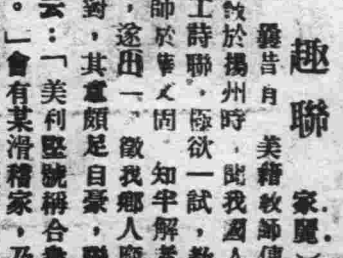 趣聯 家麗
曩昔有 美籍教師傳
教於揚州時,聞我國人
工詩聯,極欲一試,教
師於華文固 知半解者
,遂出一 徵我鄉人
對,其意頗足自豪,聯
云:「美利堅號稱合衆
。」會有某滑稽家,乃